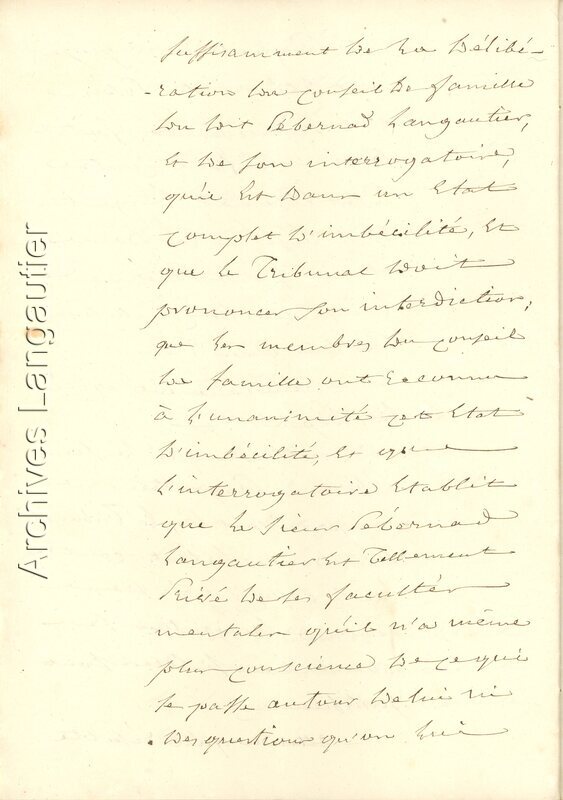 suffisamment de la délibé-
-ration du conseil de famille
du dit Pébernad Langautier,
et de son interrogatoire,
qu'il est dans un état
complet d'imbécilité, et
que le Tribunal doit
prononcer son interdiction;
que les membres du conseil
de famille ont reconnu
à l'unanimité cet état
d'imbécilité, et que
l'interrogatoire établit
que le sieur Pébernad
Langautier est tellement
privé de ses facultés
mentales qu'il n'a même
plus conscience de ce qui
se passe autour de lui ni
des questions qu'on lui
Archives Langautier